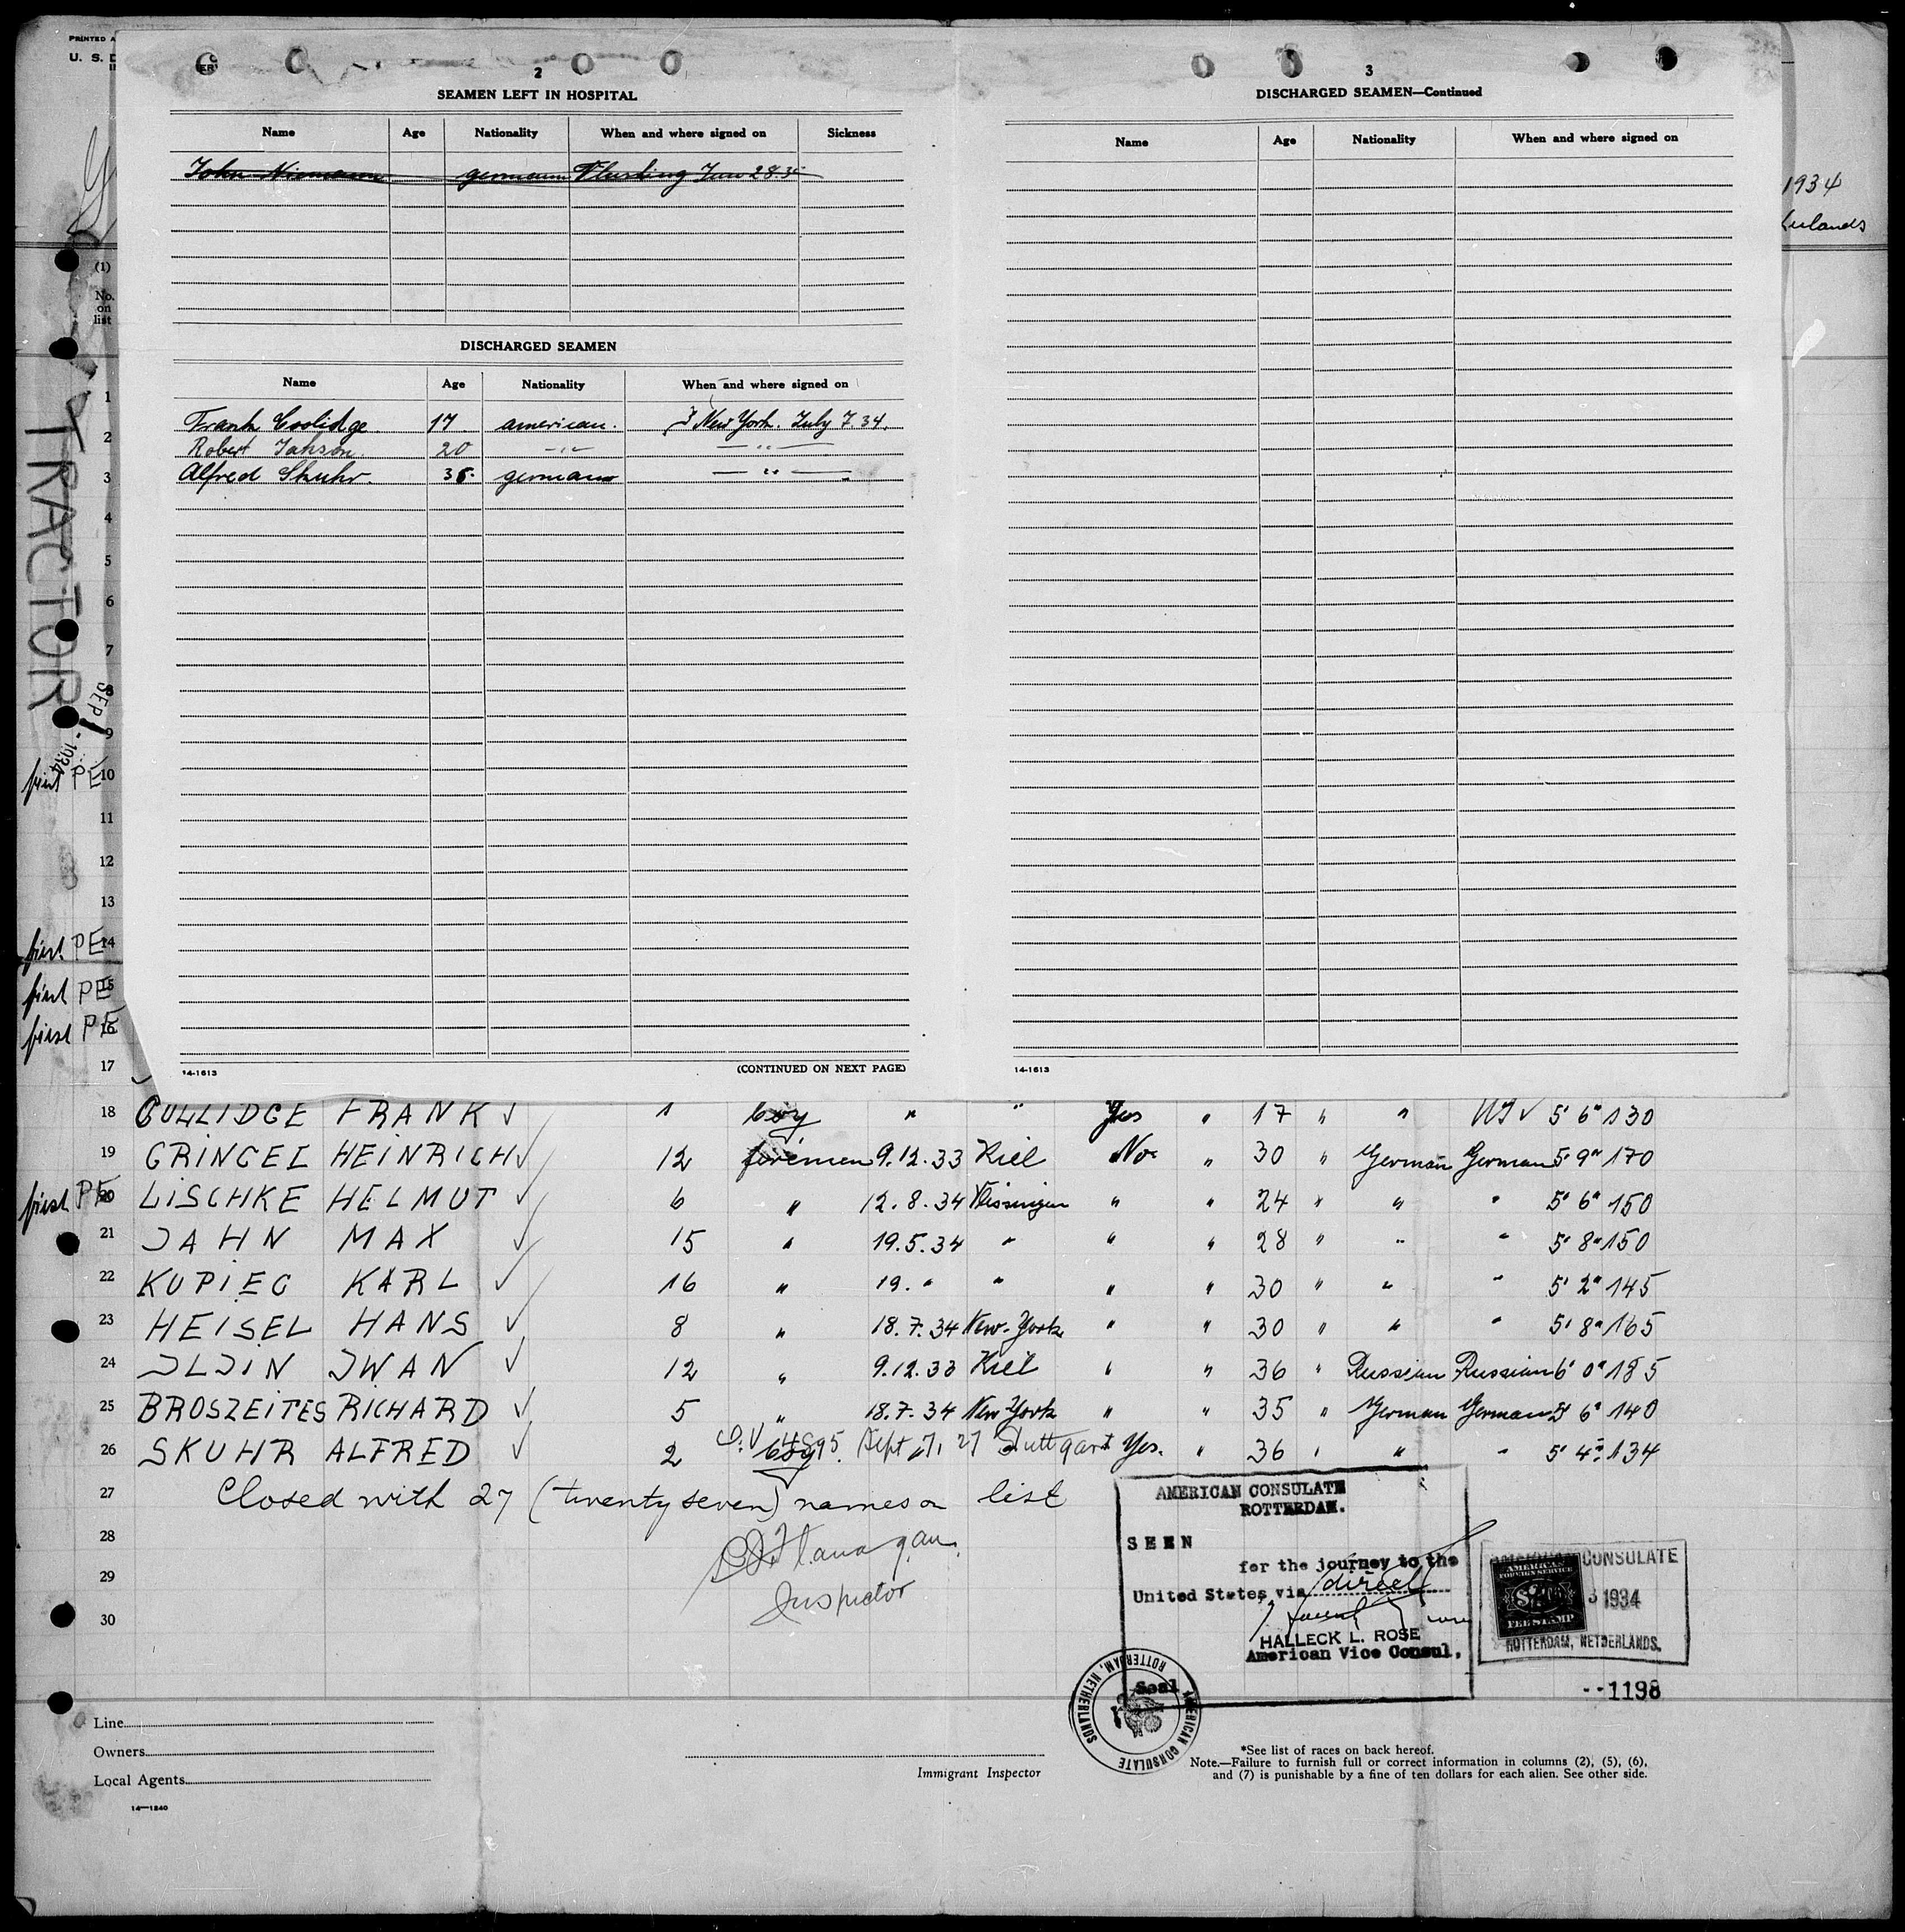 PRINTED A
U. S. D
1934
2
SEAMEN LEFT IN HOSPITAL
Name Age Nationality When and where signed on Sickness
John Niemann german Flushing June 28.34
DISCHARGED SEAMEN
Name Age Nationality When and where signed on
Frank Coolidge 17 american. New York. July 7.34.
Robert Jahson. 20 -"- -"-
Alfred Skuhr. 36. german -"-
(CONTINUED ON NEXT PAGE)
14-1613
3
DISCHARGED SEAMEN—Continued
Name Age Nationality When and where signed on
14-1613
(1)
No.
on
list
TRACTOR
SEP 1 - 1934
1
2
3
4
5
6
7
8
9
first PE 10
11
12
13
first PE 14
first PE 15
first PE 16
17
18 COLLIDGE FRANK ✓ 1 boy " " Yes " 17 " " US ✓ 5' 6" 130
19 GRINGEL HEINRICH ✓ 12 firemen 9.12.33 Kiel No " 30 " German German 5' 9" 170
first PE 20 LISCHKE HELMUT ✓ 6 " 12.8.34 Vlissingen " " 24 " " " 5' 6" 150
21 JAHN MAX ✓ 15 " 19.5.34 " " " 28 " " " 5' 8" 150
22 KUPIEC KARL ✓ 16 " 19. " " " " 30 " " " 5' 2" 145
23 HEISEL HANS ✓ 8 " 18.7.34 New-York " " 30 " " " 5' 8" 165
24 ILJIN IWAN ✓ 12 " 9.12.33 Kiel " " 36 " Russian Russian 6' 0" 185
25 BROSZEITES RICHARD ✓ 5 " 18.7.34 New York " " 35 " German German 5' 6" 140
26 SKUHR ALFRED ✓ 2 boy Sept 17, 27 Stuttgart Yes. " 36 " " " 5' 4" 134
27 Closed with 27 (twenty seven) names on list
28 Flanagan
29 Inspector
30
AMERICAN CONSULATE
ROTTERDAM.
SEEN
for the journey to the
United States via direct
HALLECK L. ROSE
American Vice Consul.
Seal
AMERICAN CONSULATE ROTTERDAM, NETHERLANDS
AMERICAN CONSULATE
AMERICAN
FOREIGN SERVICE
FEE STAMP
1934
ROTTERDAM, NETHERLANDS.
--1198
Line
Owners
Local Agents
14—1240
Immigrant Inspector
*See list of races on back hereof.
Note.—Failure to furnish full or correct information in columns (2), (5), (6),
and (7) is punishable by a fine of ten dollars for each alien. See other side.